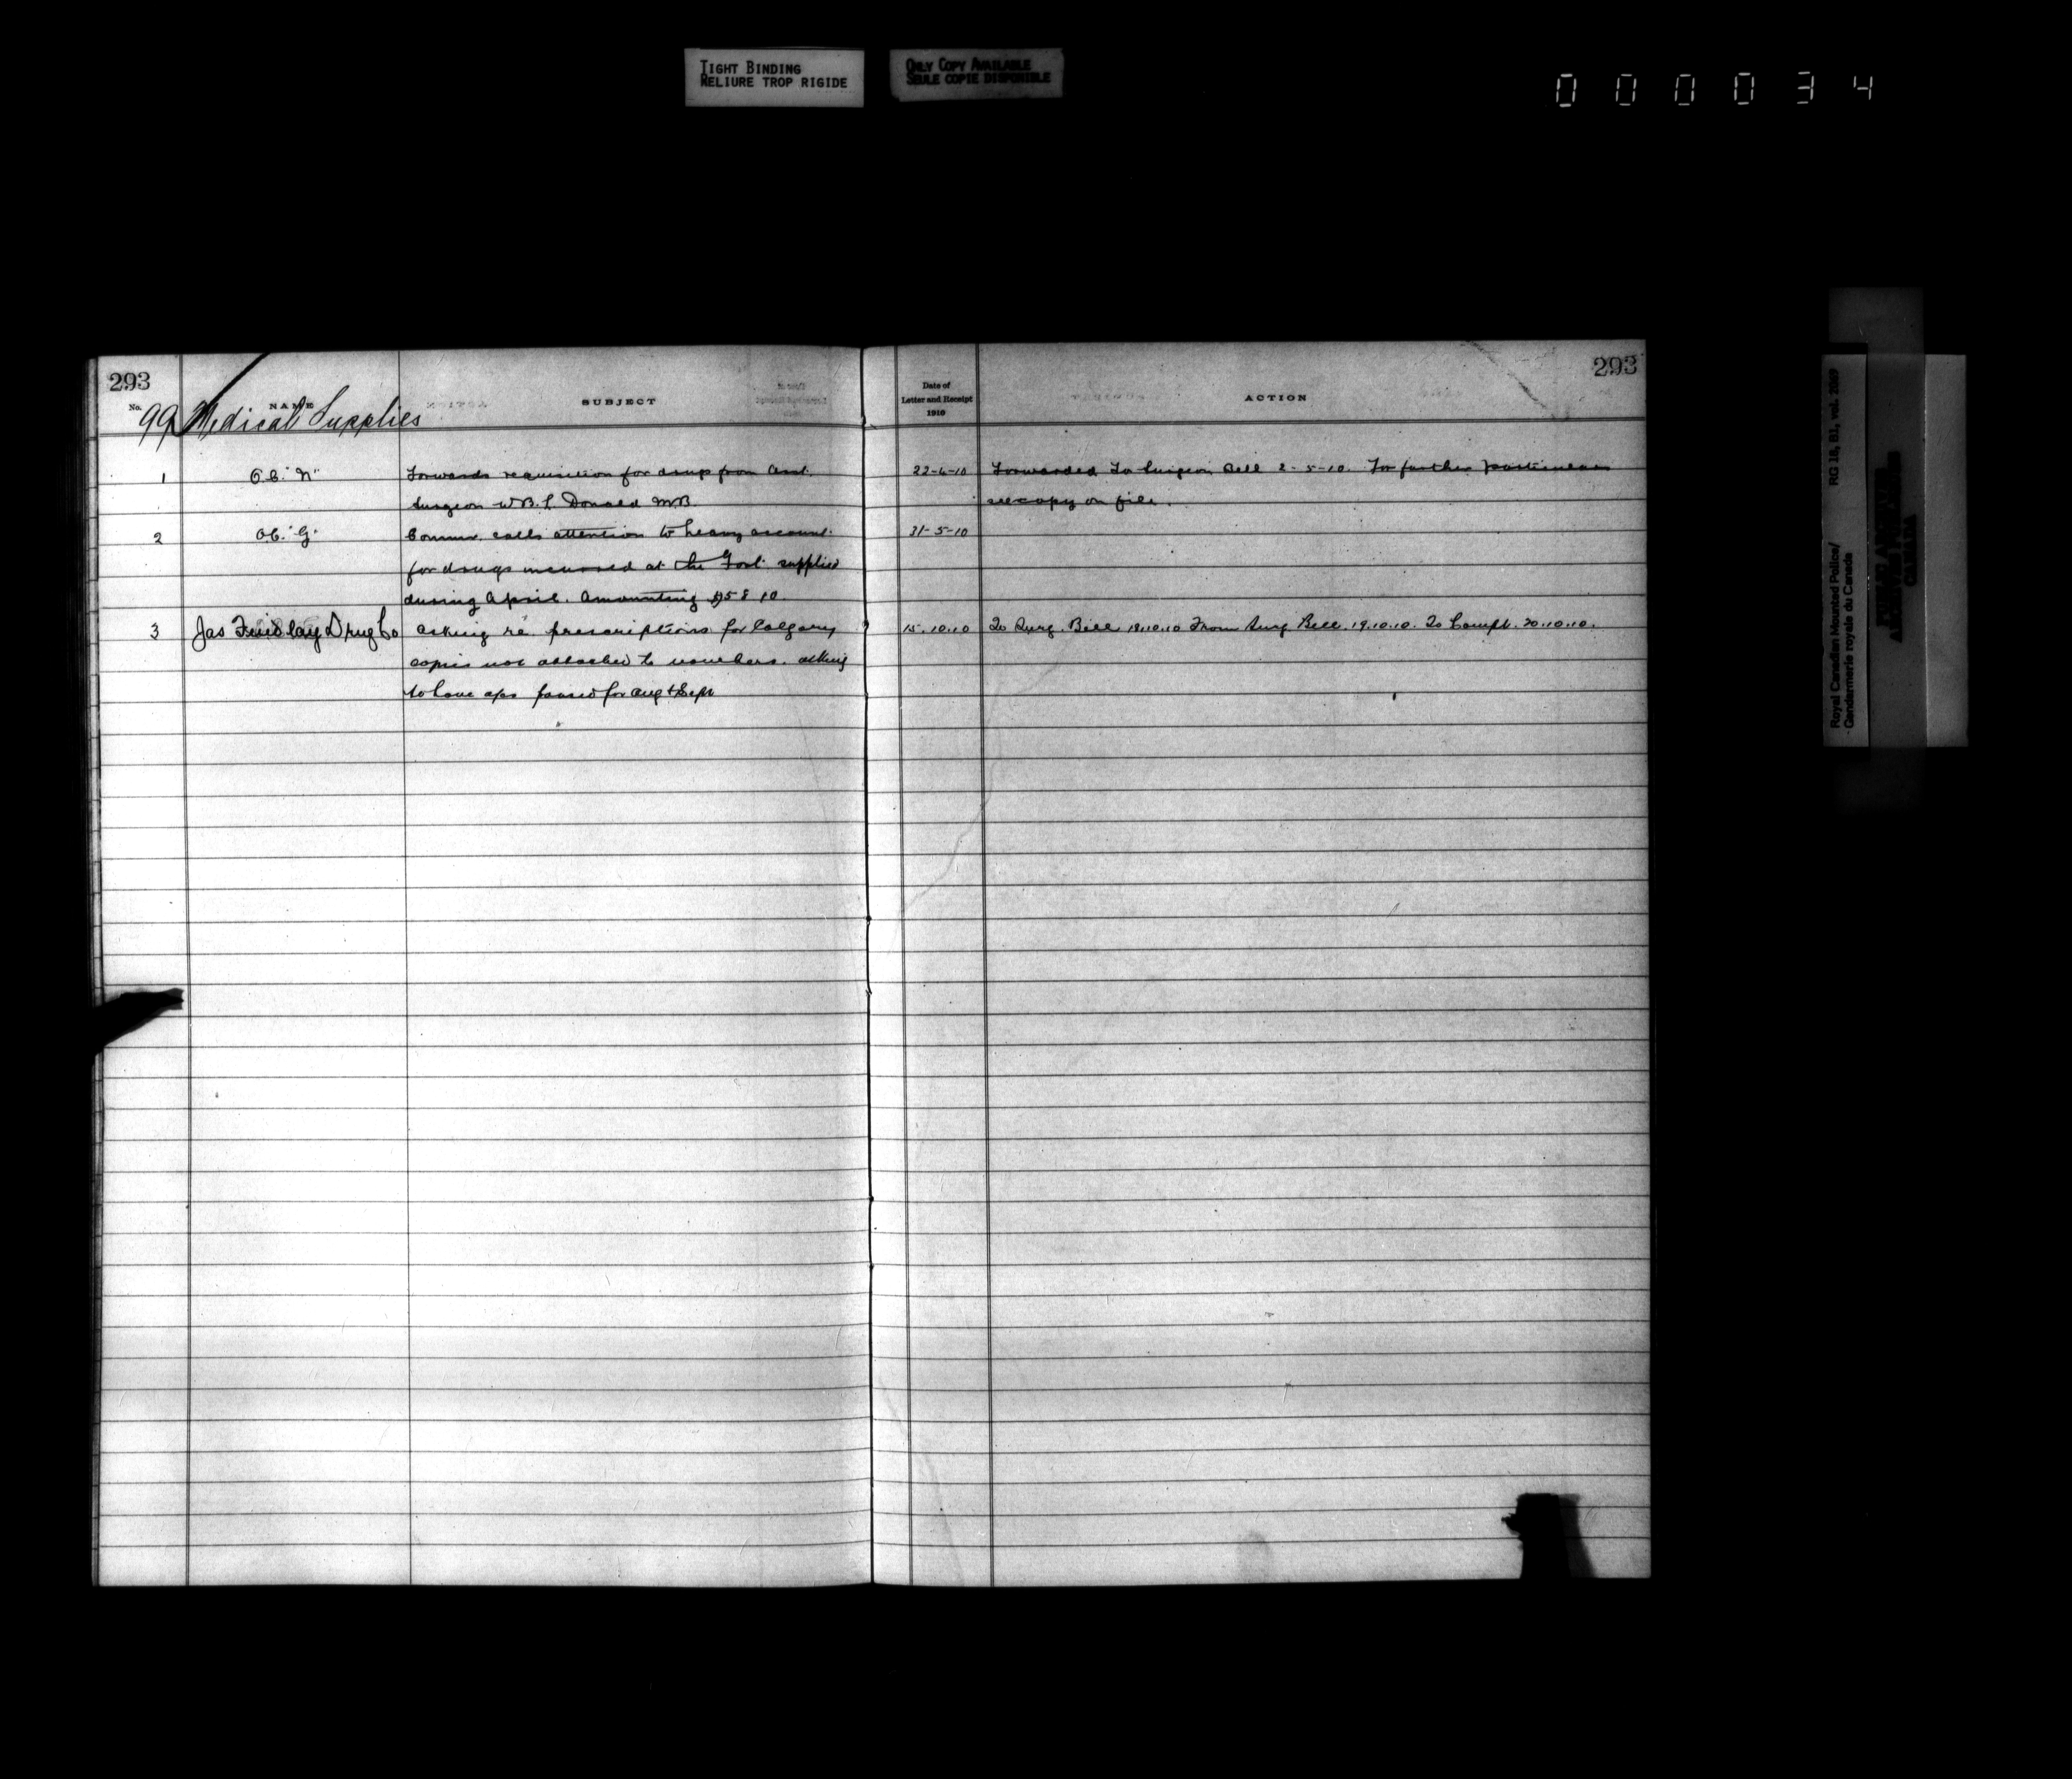 TIGHT BINDING
RELIURE TROP RIGIDE
ONLY COPY AVAILABLE
SEULE COPIE DISPONIBLE
000034
293
No.
NAME
SUBJECT
99 Medical Supplies
1 O.C. "N" Forwards requisition for drugs from Asst.
Surgeon W.B.L. Donald M.B
2 O.C. "G" Commr. calls attention to heavy account
for drugs incurred at the Govt. supplied
during April. Amounting $58 10
3 Jas Findlay Drug Co Asking re. prescriptions for Calgary
copies not attached to vouchers. asking
to have a/cs passed for Aug & Sept
293
Date of
Letter and Receipt
1910
ACTION
22-4-10 Forwarded To Surgeon Bell 2-5-10. For further particulars
see copy on file.
31-5-10
15.10.10 To Surg. Bell 18.10.10 From Surg Bell. 19.10.10. To Compt. 20.10.10.
Royal Canadian Mounted Police/
Gendarmerie royale du Canada
RG 18, B1, vol. 2069
PUBLIC ARCHIVES
ARCHIVES PUBLIQUES
CANADA